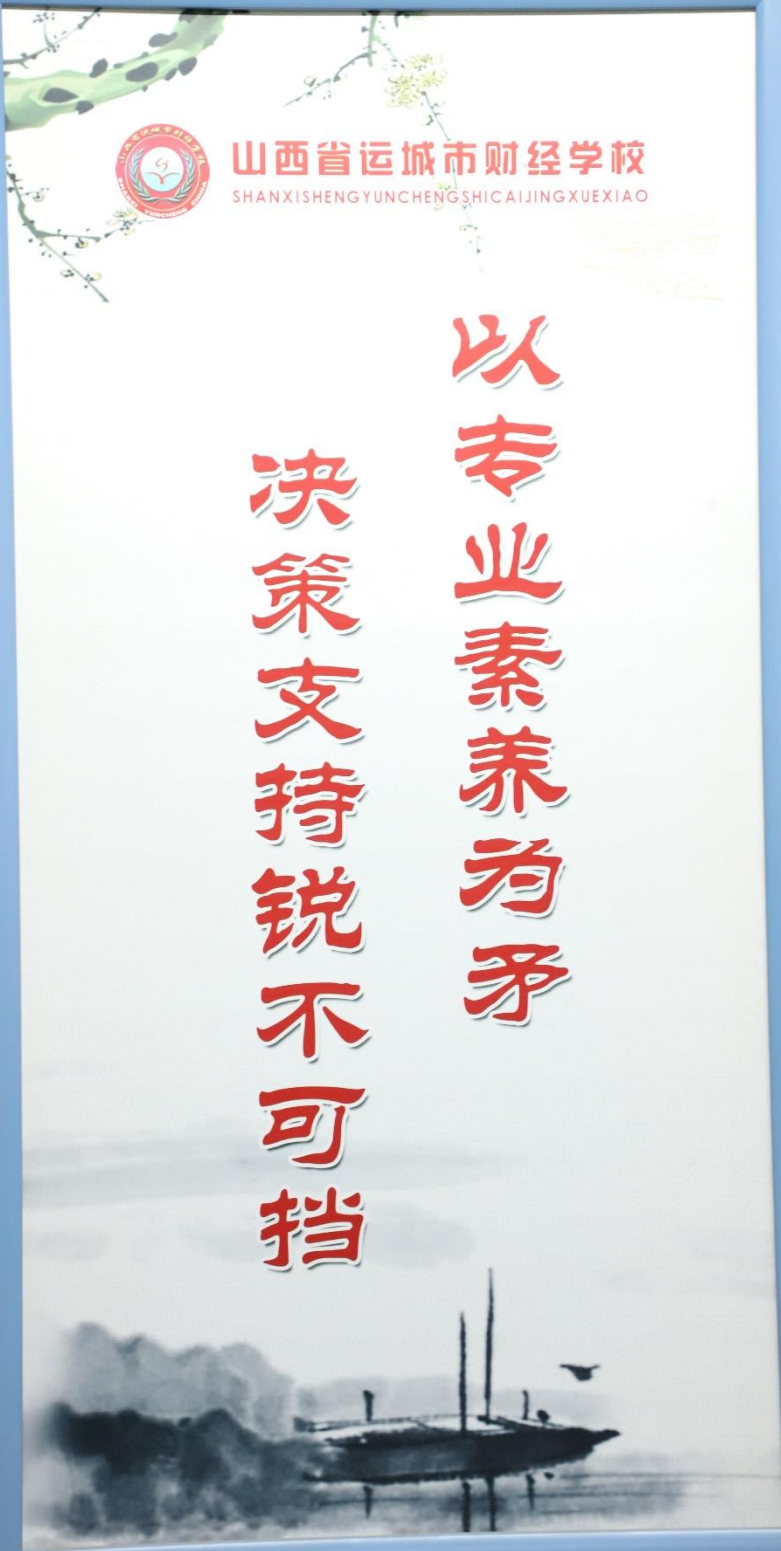 山西省运城市财经学校
SHANXISHENGYUNCHENGSHICAIJINGXUEXIAO
以专业素养为矛
决策支持锐不可挡